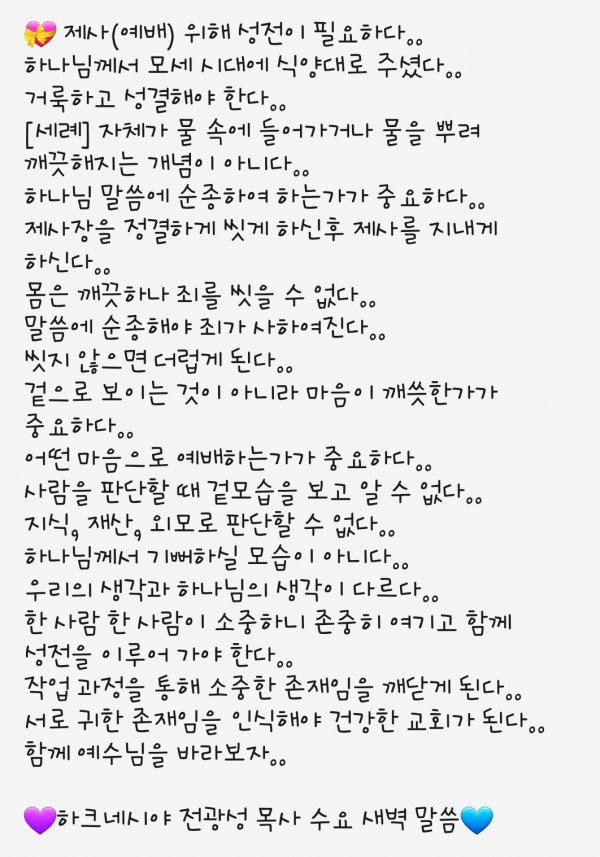 💝 제사(예배) 위해 성전이 필요하다..
하나님께서 모세 시대에 식양대로 주셨다..
거룩하고 성결해야 한다..
[세례] 자체가 물 속에 들어가거나 물을 뿌려
깨끗해지는 개념이 아니다..
하나님 말씀에 순종하여 하는가가 중요하다..
제사장을 정결하게 씻게 하신후 제사를 지내게
하신다..
몸은 깨끗하나 죄를 씻을 수 없다..
말씀에 순종해야 죄가 사하여진다..
씻지 않으면 더럽게 된다..
겉으로 보이는 것이 아니라 마음이 깨씃한가가
중요하다..
어떤 마음으로 예배하는가가 중요하다..
사람을 판단할 때 겉모습을 보고 알 수 없다..
지식, 재산, 외모로 판단할 수 없다..
하나님께서 기뻐하실 모습이 아니다..
우리의 생각과 하나님의 생각이 다르다..
한 사람 한 사람이 소중하니 존중히 여기고 함께
성전을 이루어 가야 한다..
작업 과정을 통해 소중한 존재임을 깨닫게 된다..
서로 귀한 존재임을 인식해야 건강한 교회가 된다..
함께 예수님을 바라보자..
💜하크네시야 전광성 목사 수요 새벽 말씀💙